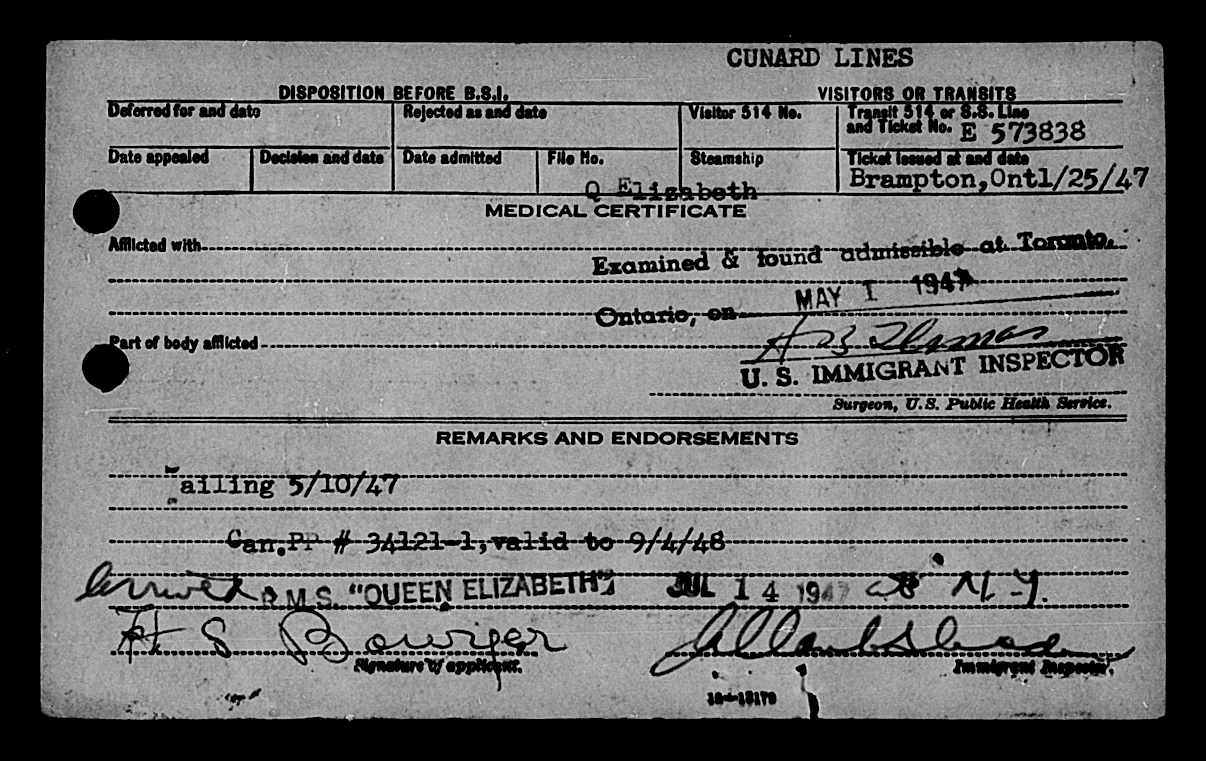 CUNARD LINES
DISPOSITION BEFORE B.S.I. VISITORS OR TRANSITS
Deferred for and date Rejected as and date Visitor 514 No. Transit 514 or S.S. Line and Ticket No. E 573838
Date appealed Decision and date Date admitted File No. Steamship Ticket issued at and date
Q Elizabeth Brampton,Ont1/25/47
MEDICAL CERTIFICATE
Afflicted with
Examined & found admissible at Toronto,
Ontario, on MAY 1 1947
Part of body afflicted
H B Thomas
U. S. IMMIGRANT INSPECTOR
Surgeon, U.S. Public Health Service.
REMARKS AND ENDORSEMENTS
ailing 5/10/47
Can.PP # 34121-1,valid to 9/4/48
Arrived R.M.S. "QUEEN ELIZABETH" JUL 14 1947 at N.Y.
H S
Signature of applicant. Immigrant Inspector.